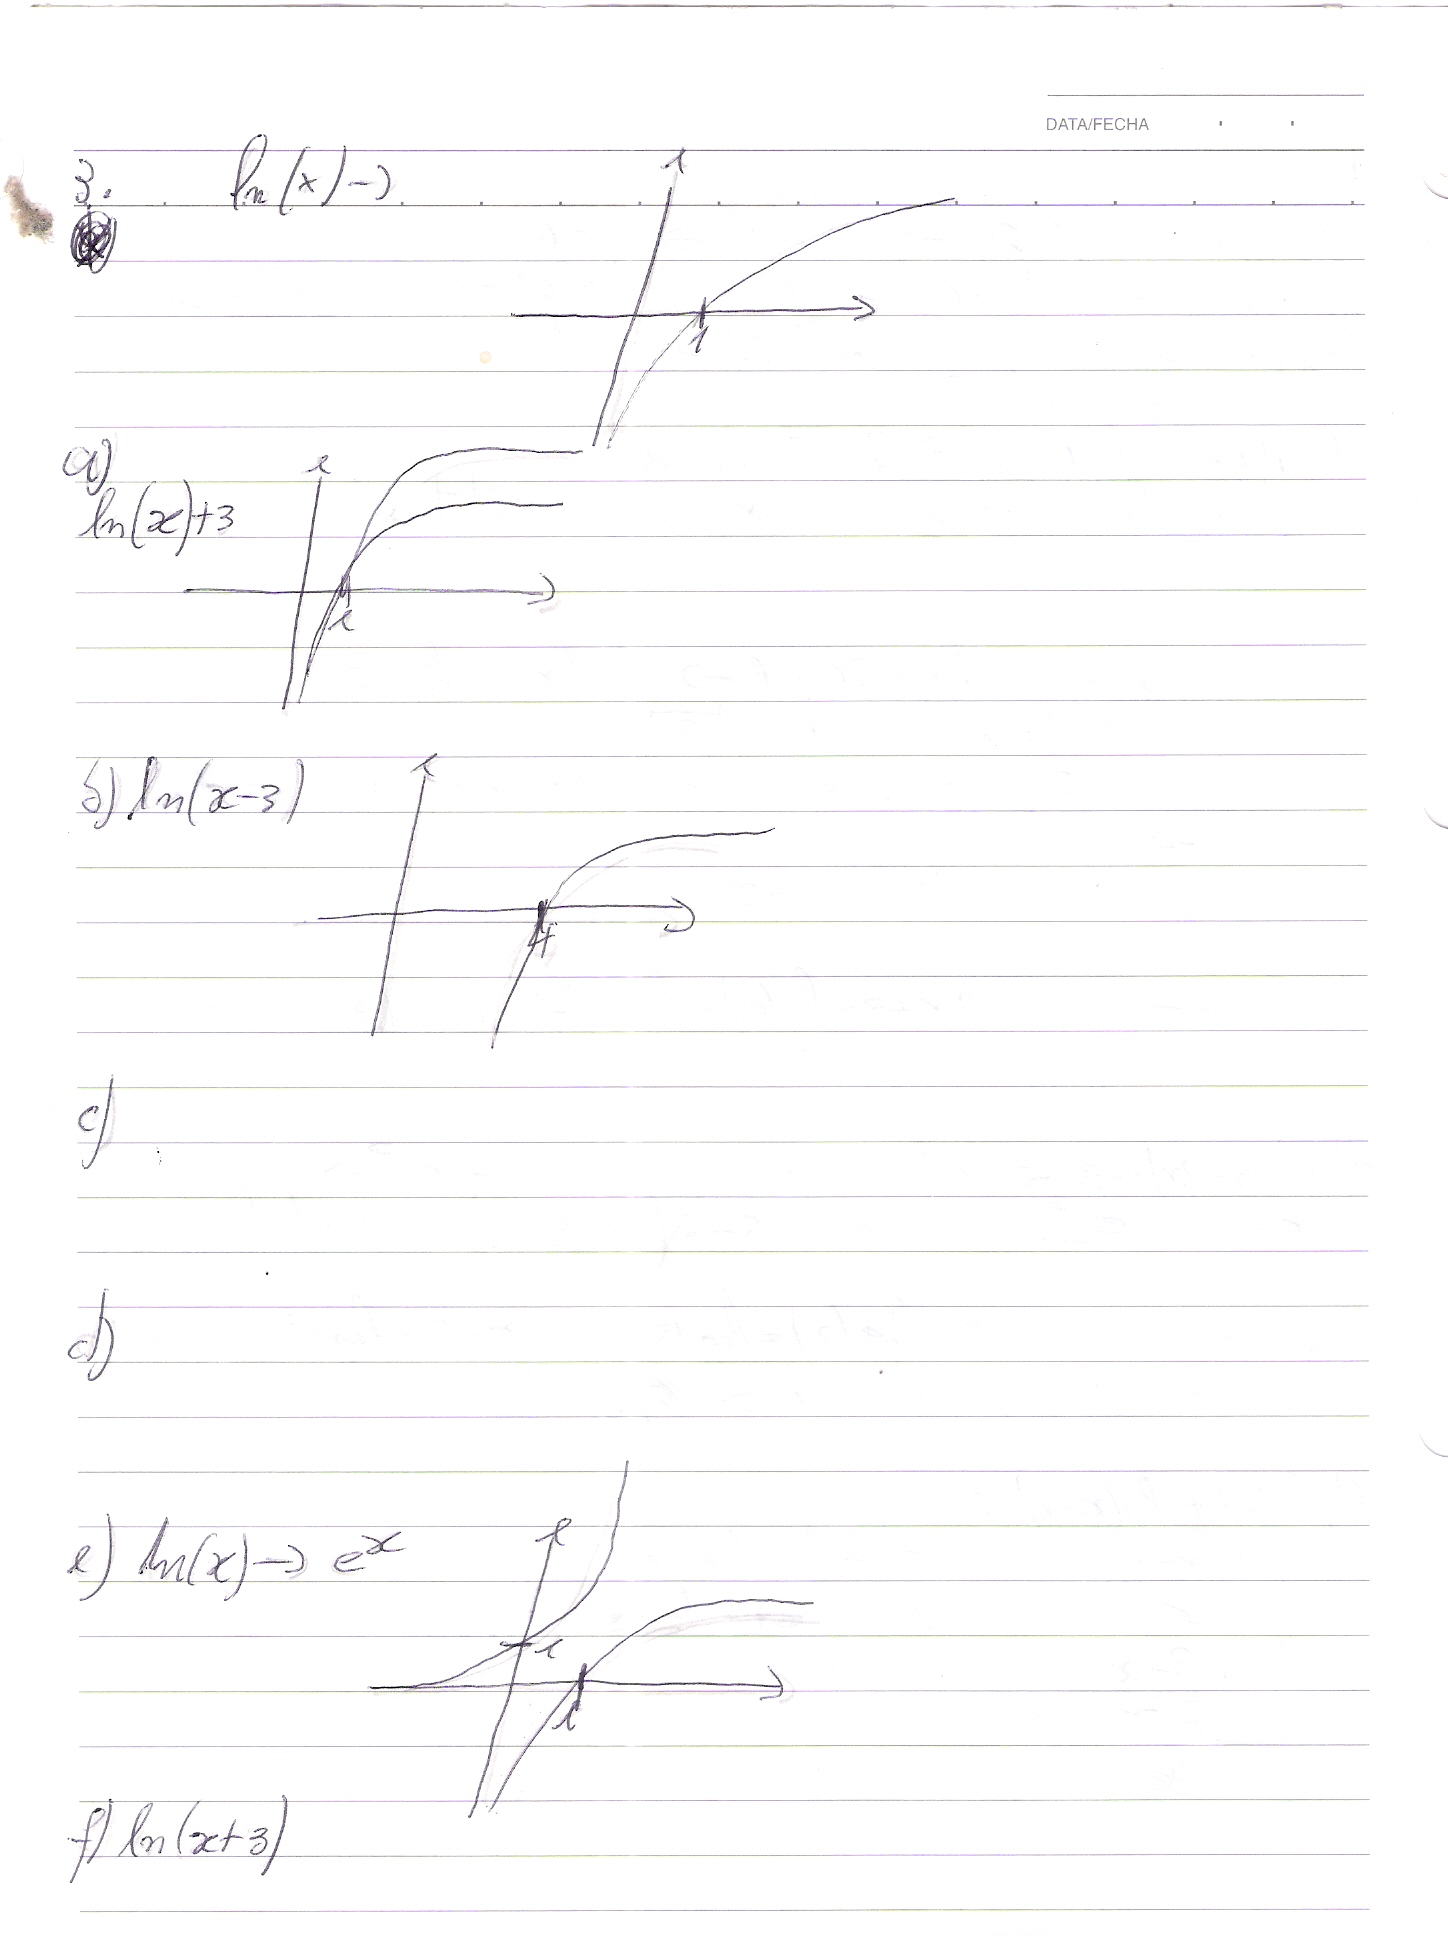 DATA/FECHA
3. ln(x) →
1
a)
ln(x)+3
1
b) ln(x-3)
4
c)
d)
e) ln(x) → e^x
1
1
f) ln(x+3)